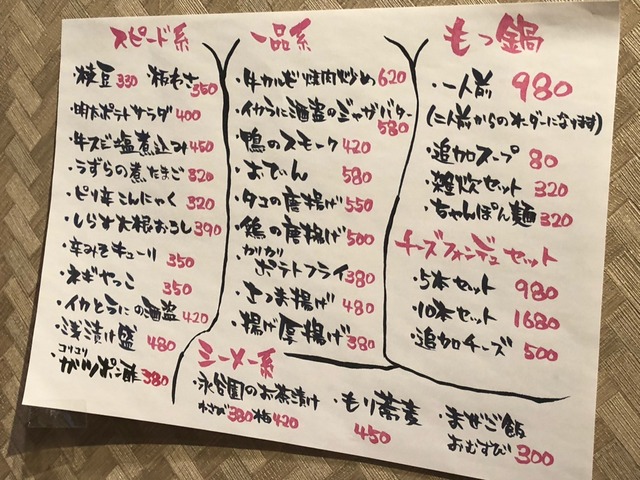 スピード系
・枝豆 330 ・板わさ 350
・明太ポテトサラダ 400
・牛スジ塩煮込み 450
・うずらの煮たまご 320
・ピリ辛こんにゃく 320
・しらす大根おろし 390
・辛みそキューリ 350
・ネギやっこ 350
・イカとうにの酒盗 420
・浅漬け盛 480
コリコリ
・ガツポン酢 380
一品系
・牛カルビ焼肉炒め 620
・イカうに酒盗のジャガバター
580
・鴨のスモーク 420
・おでん 580
・タコの唐揚げ 550
・鶏の唐揚げ 500
ガリガリ
・ポテトフライ 380
・さつま揚げ 480
・揚げ厚揚げ 380
もつ鍋
・一人前 980
(二人前からのオーダーになります)
・追加スープ 80
・雑炊セット 320
・ちゃんぽん麺 320
チーズフォンデュセット
・5本セット 980
・10本セット 1680
・追加チーズ 500
シーメー系
・永谷園のお茶漬け
わさび 380 梅 420
・もり蕎麦
450
・まぜご飯
おむすび 300